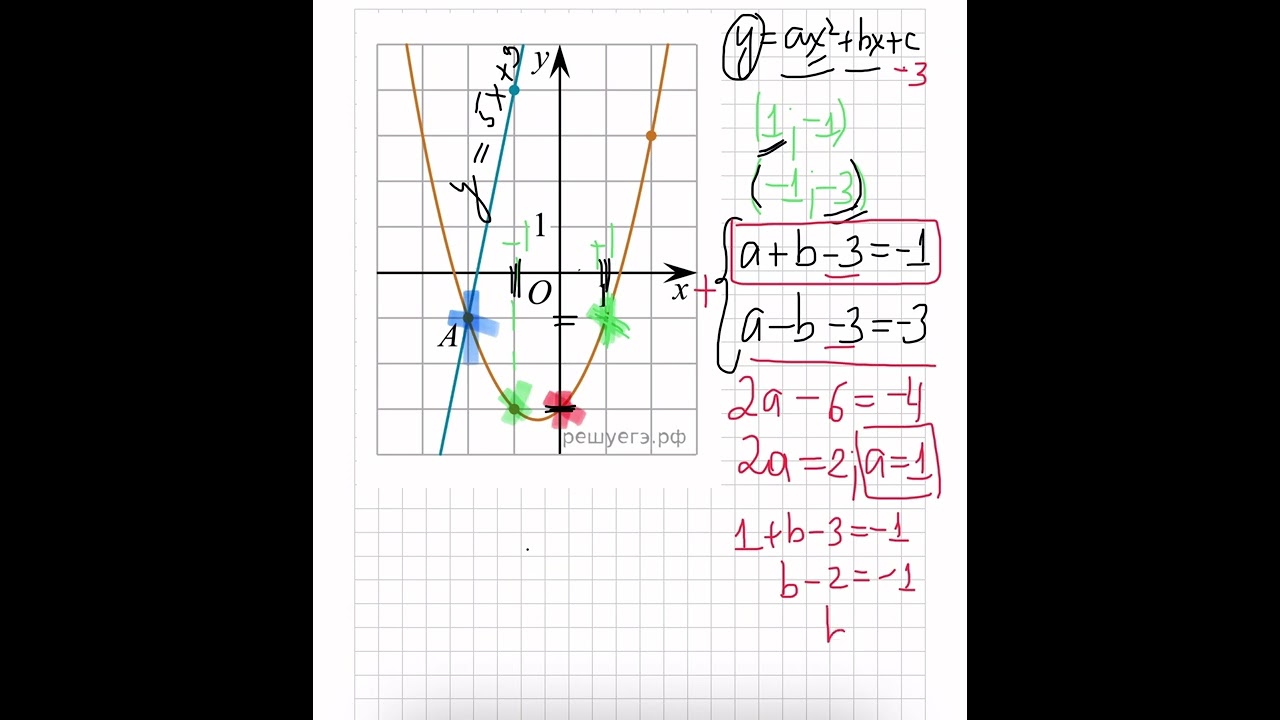 y = 5x + 9
y
1
-1
+1
O
x
A
решуегэ.рф
y = ax² + bx + c
-3
(1; -1)
(-1; -3)
a + b - 3 = -1
+
a - b - 3 = -3
2a - 6 = -4
2a = 2; a = 1
1 + b - 3 = -1
b - 2 = -1